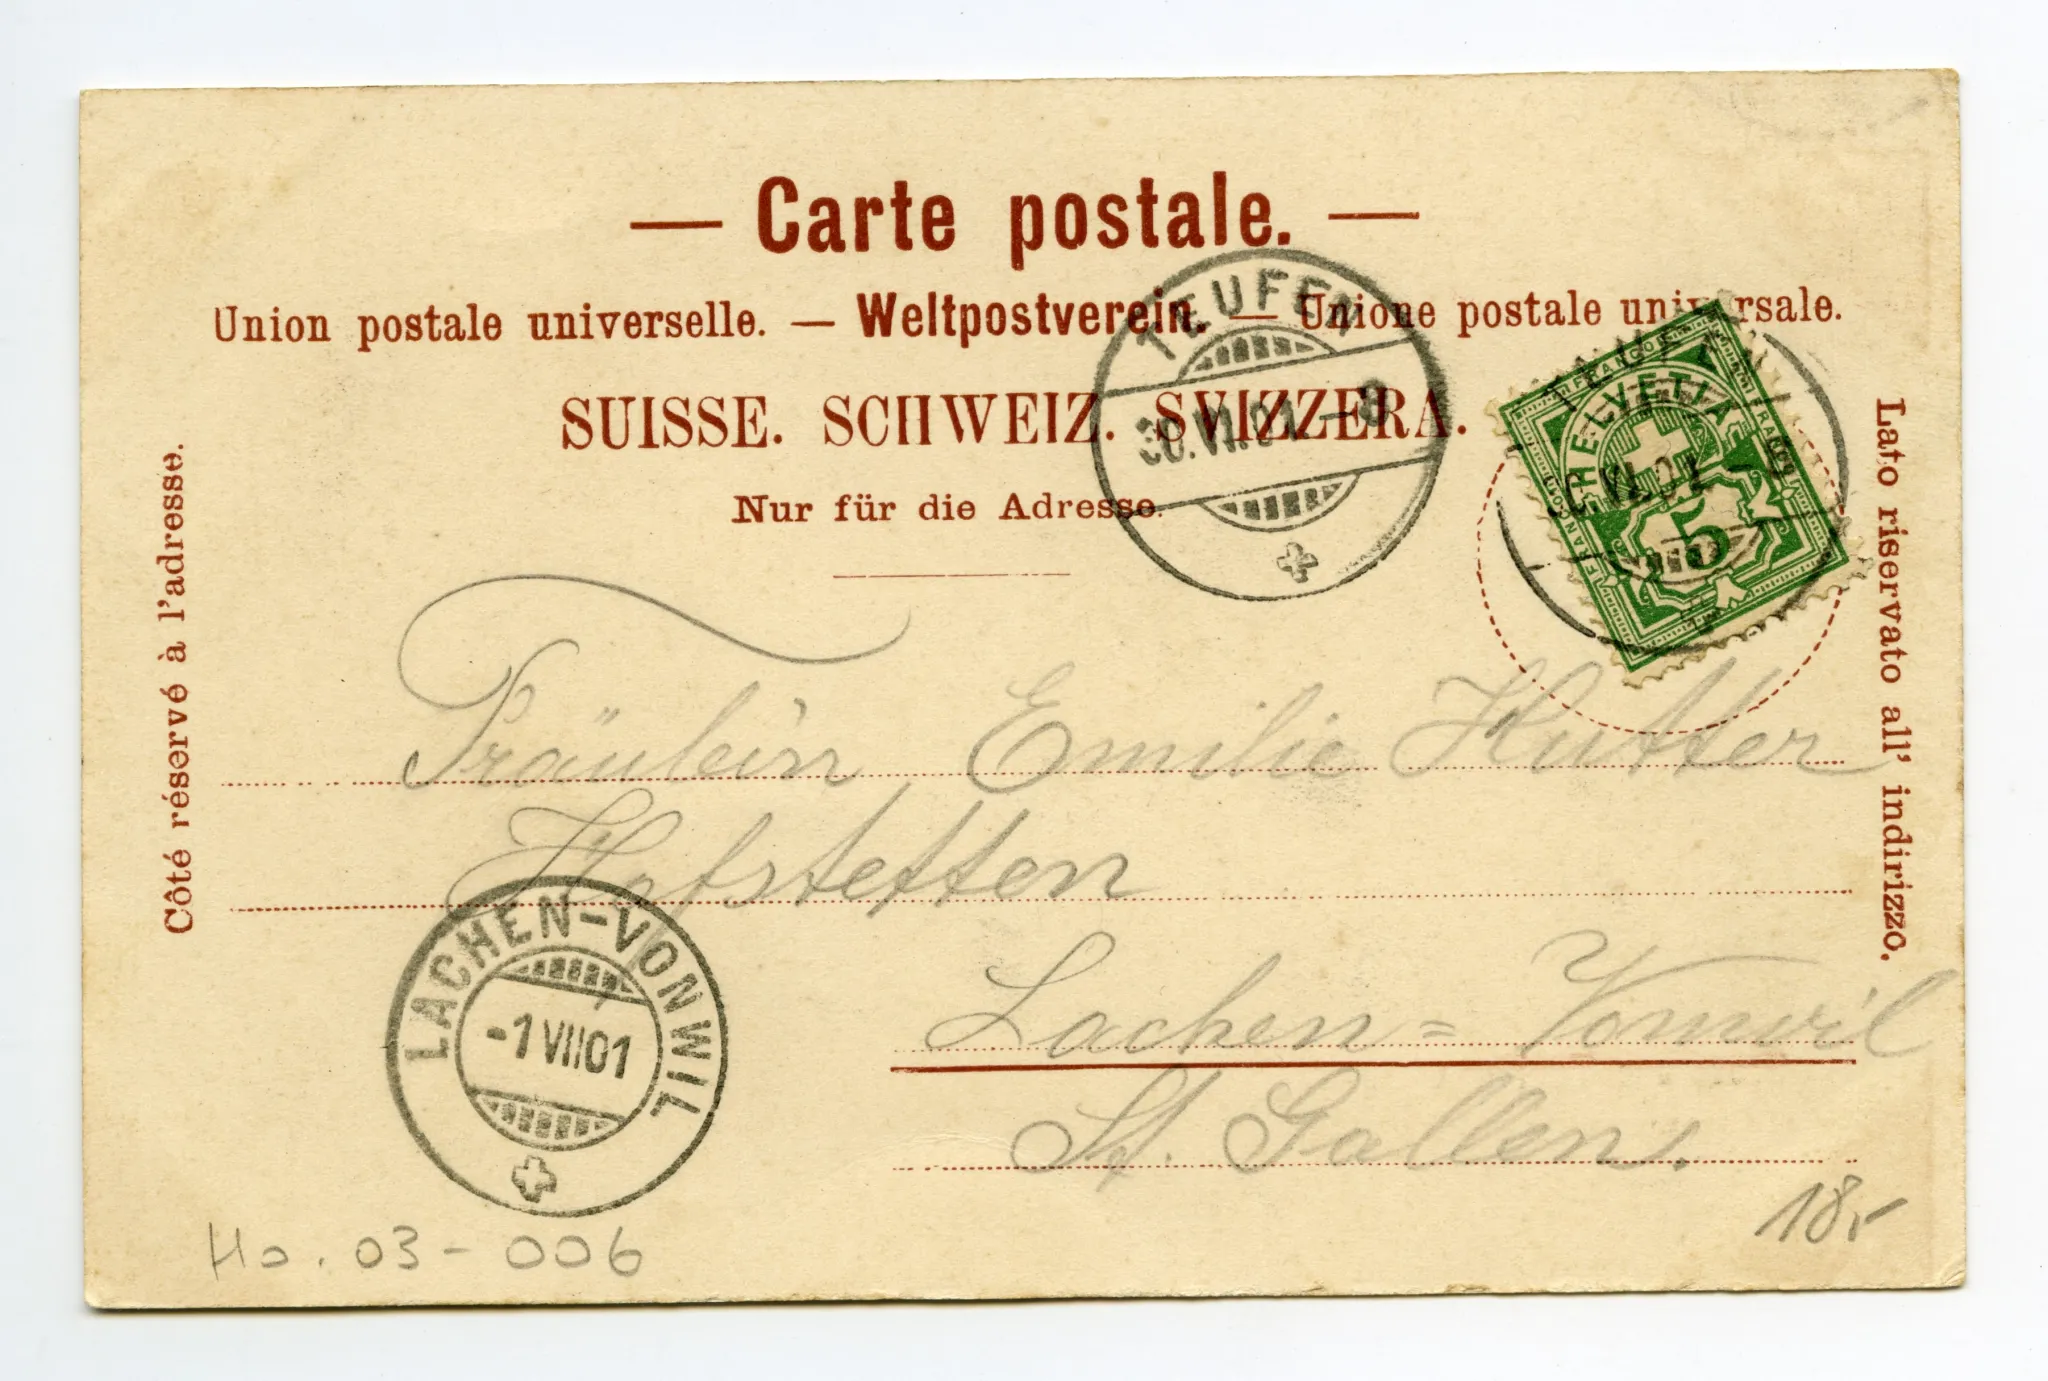 — Carte postale. —
Union postale universelle. — Weltpostverein. — Unione postale universale.
SUISSE. SCHWEIZ. SVIZZERA.
Nur für die Adresse.
Côté réservé à l'adresse.
Lato riservato all' indirizzo.
TEUFEN
30.VI.01.-8
FRANCO
HELVETIA
FRANCO
FRANCO
5
30.VI.01-8
Fräulein Emilie Hutter
Hofstetten
Lachen=Vonwil
St. Gallen.
LACHEN-VONWIL
-1 VII 01
Ho. 03-006
18.-